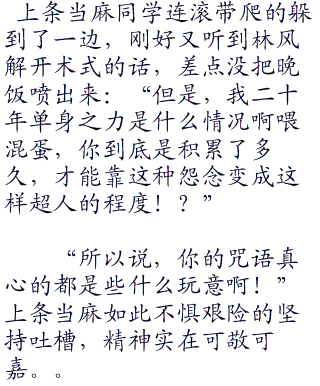 上条当麻同学连滚带爬的躲
到了一边，刚好又听到林风
解开术式的话，差点没把晚
饭喷出来：“但是，我二十
年单身之力是什么情况啊喂
混蛋，你到底是积累了多
久，才能靠这种怨念变成这
样超人的程度！？”
“所以说，你的咒语真
心的都是些什么玩意啊！”
上条当麻如此不惧艰险的坚
持吐槽，精神实在可敬可
嘉。。